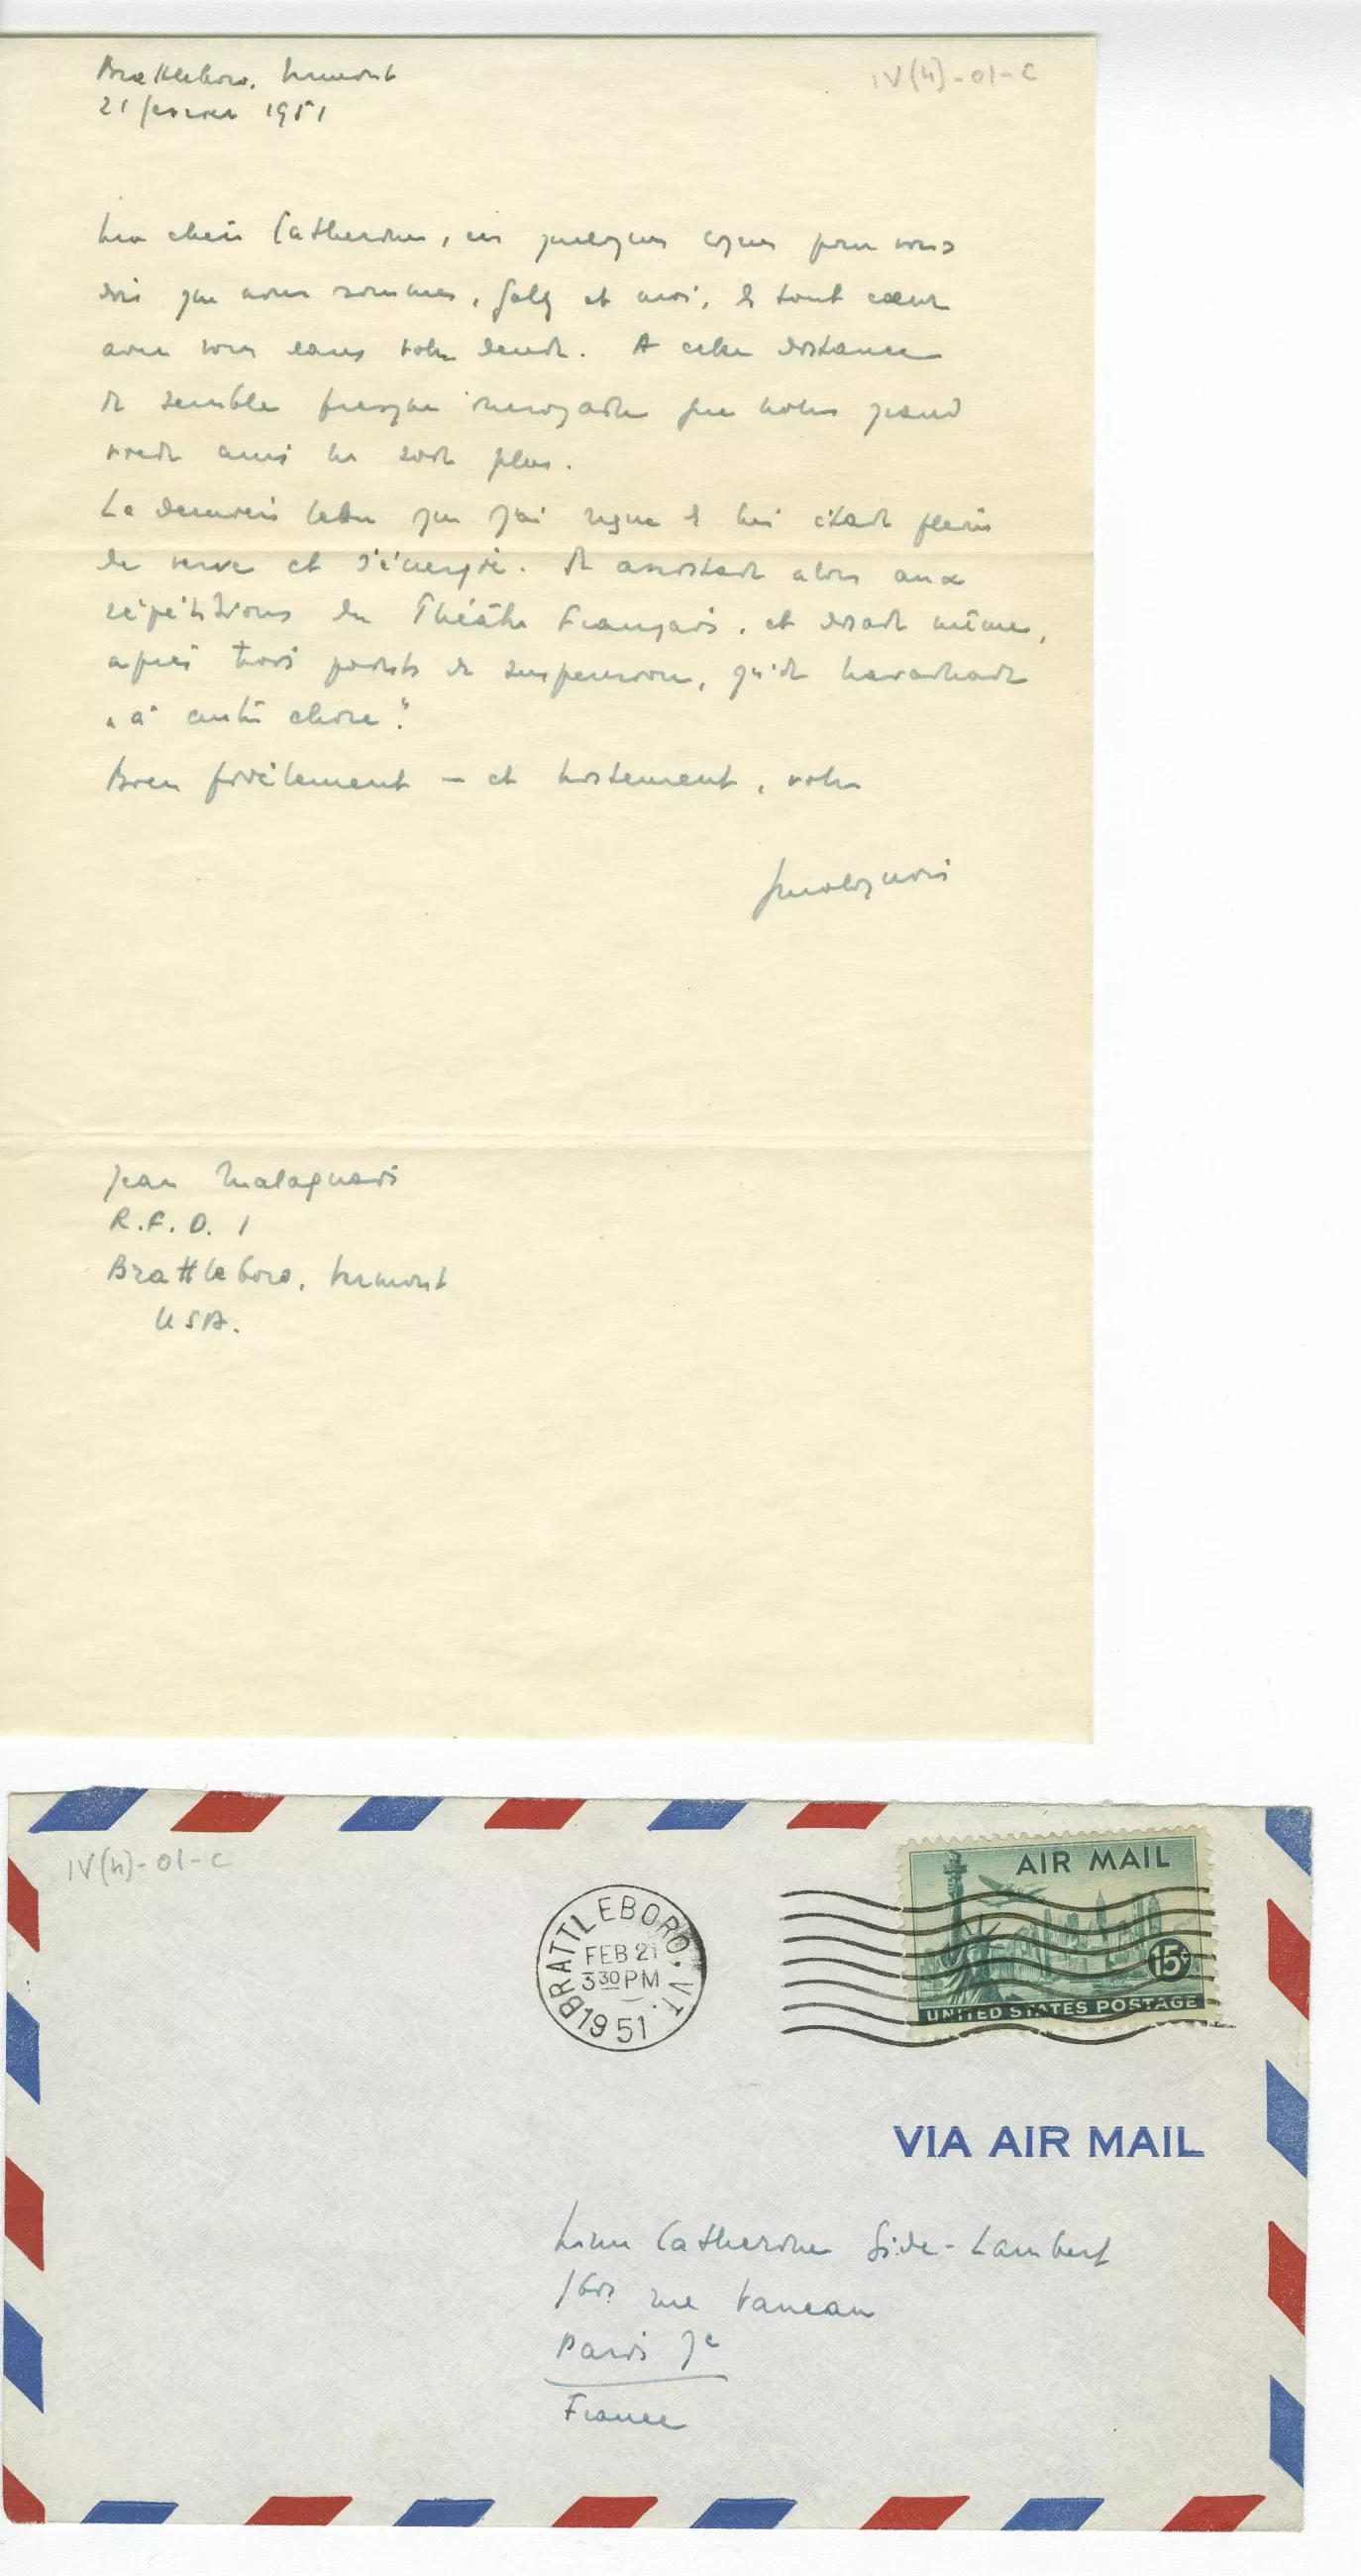 Brattleboro, Vermont
21 février 1951
IV(4)-01-C
Ma chère Catherine, ces quelques lignes pour vous
dire que nous sommes, Galy et moi, de tout cœur
avec vous dans votre deuil. A cette distance
il semble presque incroyable que notre grand
vieil ami ne soit plus.
La dernière lettre que j'ai reçue de lui était pleine
de verve et d'énergie. Il assistait alors aux
répétitions du Théâtre Français, et disait même,
après trois points de suspension, qu'il travaillait
"à autre chose".
Bien fidèlement — et tristement, votre
Malaquais
Jean Malaquais
R.F.D. 1
Brattleboro, Vermont
USA.
IV(4)-01-C
BRATTLEBORO. VT.
FEB 21
3 30 PM
1951
AIR MAIL
15¢
UNITED STATES POSTAGE
VIA AIR MAIL
Mme Catherine Gide-Lambert
1bis rue Vaneau
Paris 7e
France